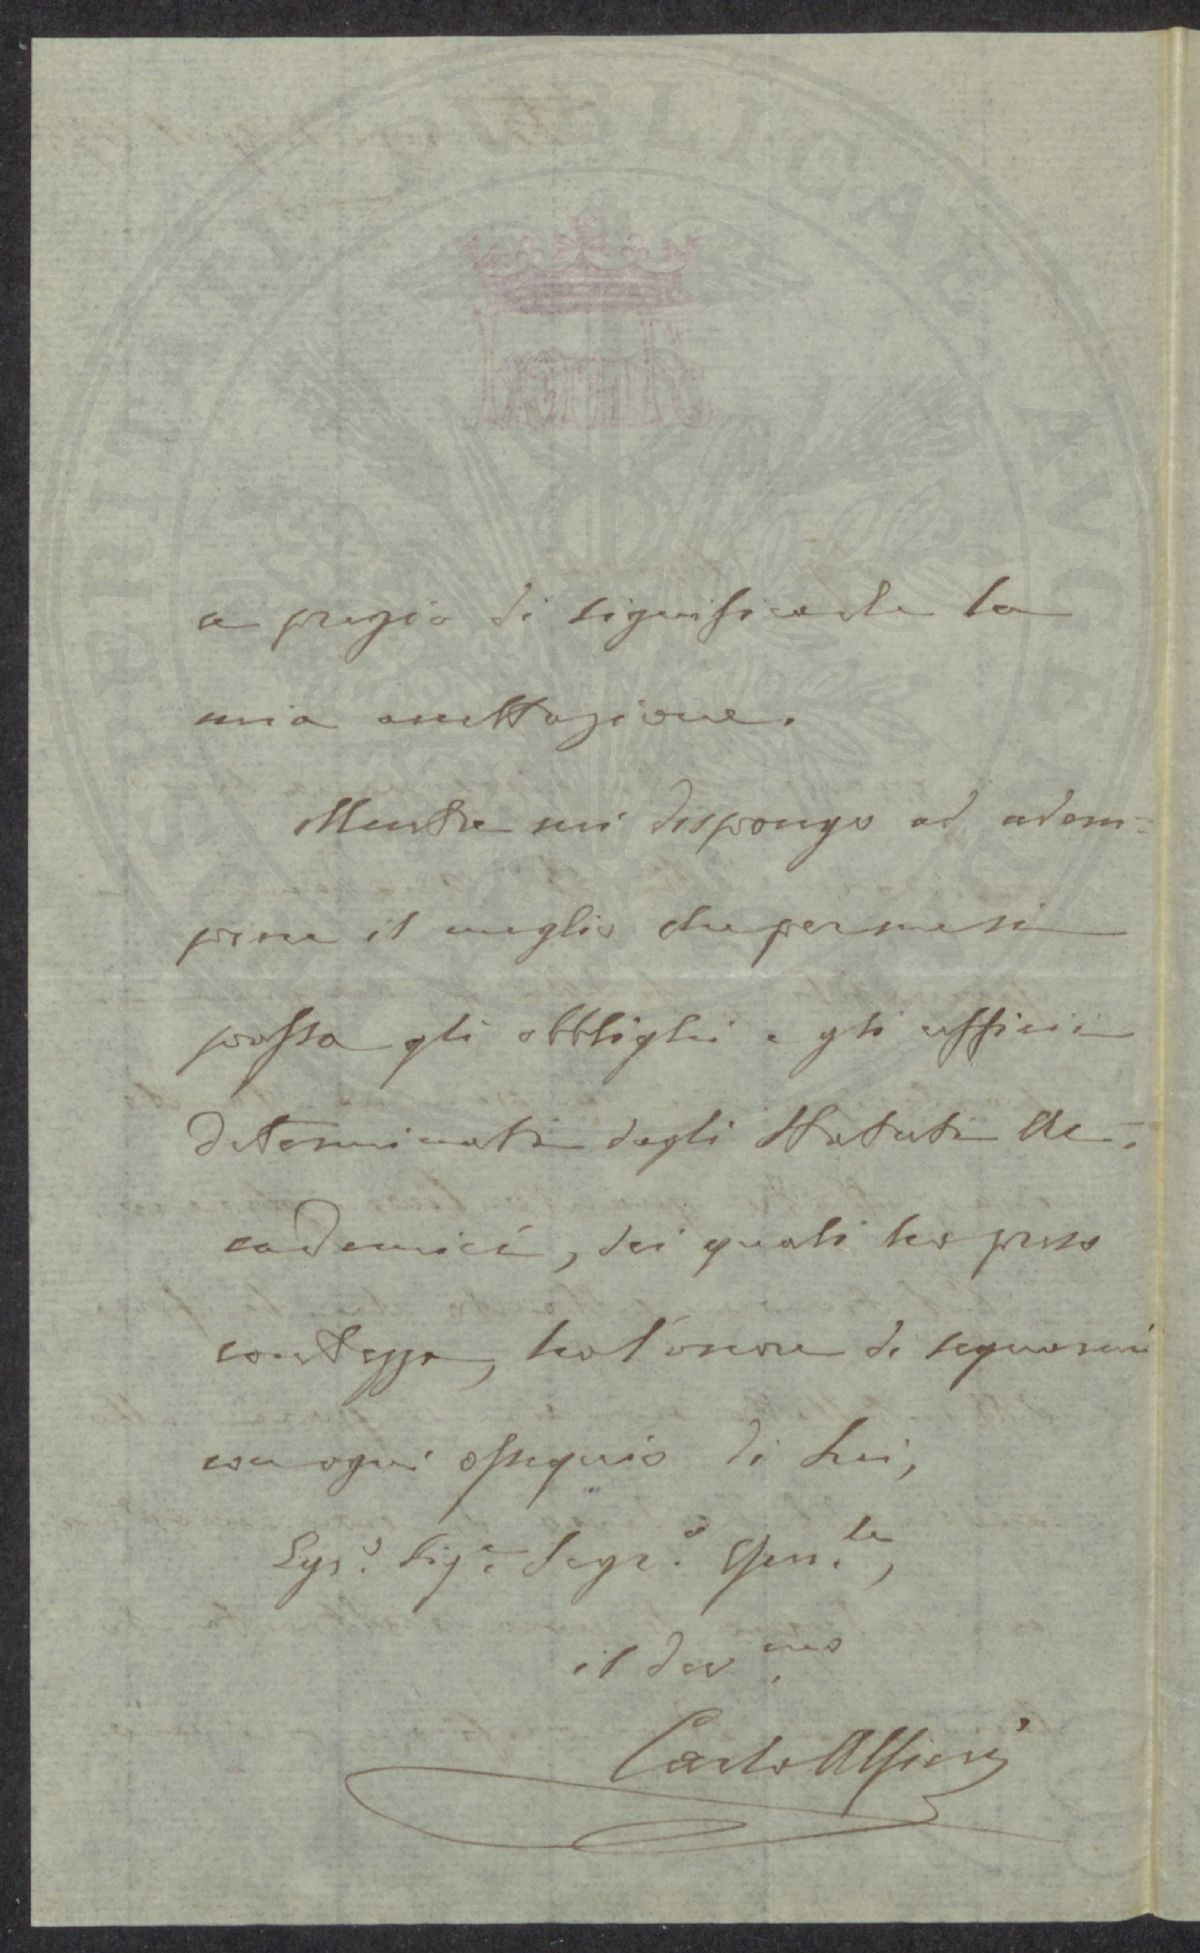 PROSPERITATI PUBLICAE AVGENDAE
a pregio di significarle la
mia accettazione.
Mentre mi dispongo ad adem-
piere il meglio che per me si
possa gli obblighi e gli ufficii
determinati dagli Statuti Ac-
cademici, dei quali ho preso
contezza, ho l'onore di segnarmi
con ogni ossequio di Lei,
Egr.º Sig.e Segr.º Gen.le,
il dev.mo
Carlo Alfieri